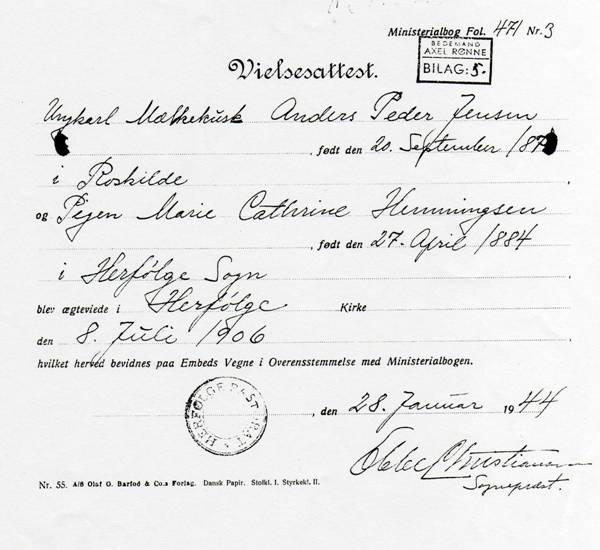 Ministerialbog Fol. 471 Nr. 3
BEDEMAND
AXEL RØNNE
BILAG: 5.
Vielsesattest.
Ungkarl Mælkekusk Anders Peder Jensen
, født den 20. September 187
i Roskilde ,
og Pigen Marie Cathrine Hemmingsen
, født den 27. April 1884
i Herfølge Sogn ,
blev ægteviede i Herfølge Kirke
den 8. Juli 1906
hvilket herved bevidnes paa Embeds Vegne i Overensstemmelse med Ministerialbogen.
HERFØLGE PASTORAT
, den 28. Januar 1944
Christiansen
Sognepræst.
Nr. 55. A/S Olaf O. Barfod & Co.s Forlag. Dansk Papir. Stofkl. I. Styrkekl. II.